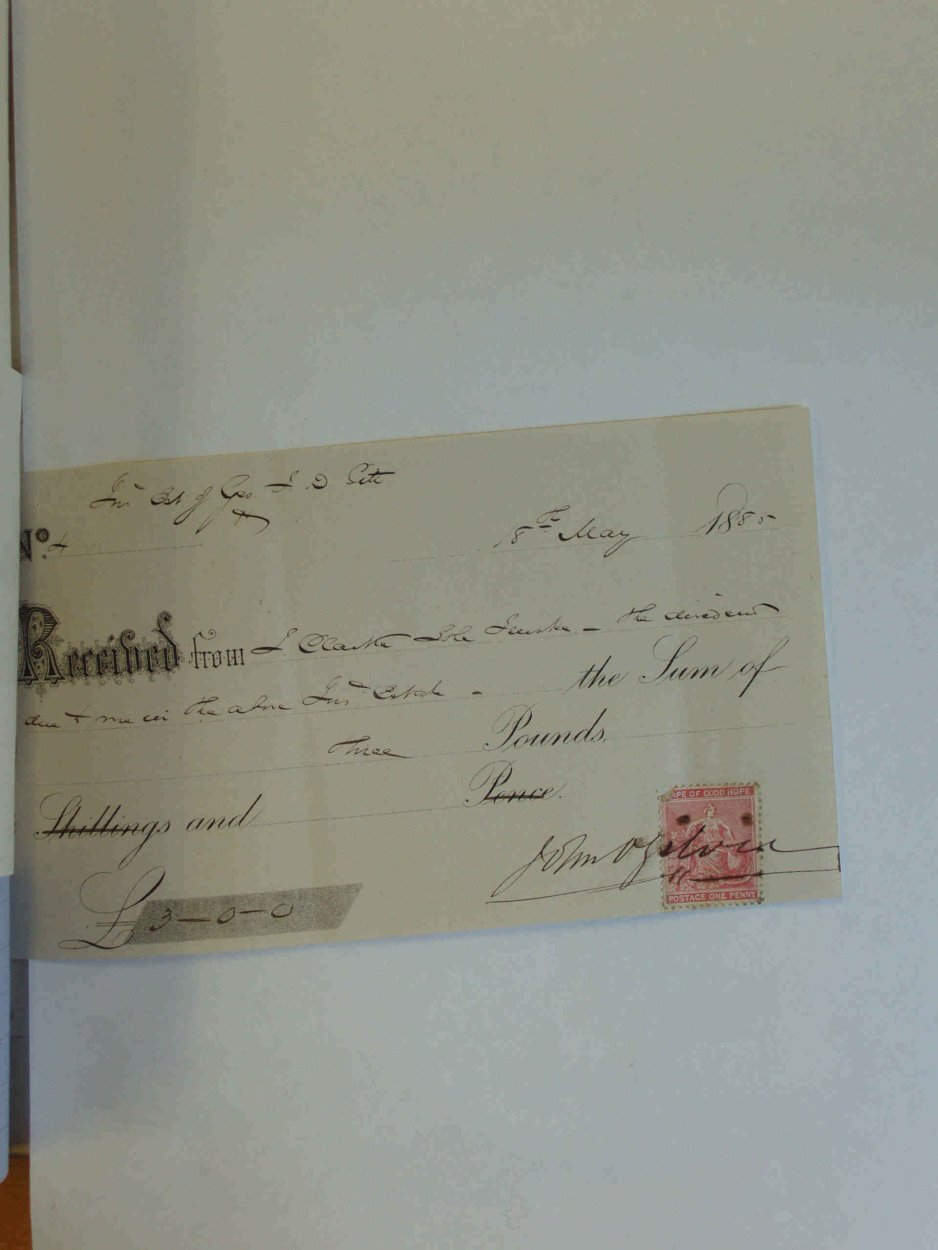 Inst Est of Geo J. D. 
No. 4
8th May 1885
Received from J Clarke Sole Trustee - the dividend
due to me in the above Inst Estate - the Sum of
three Pounds
Shillings and Pence.
John Ogilvie
£3-0-0
CAPE OF GOOD HOPE
POSTAGE ONE PENNY